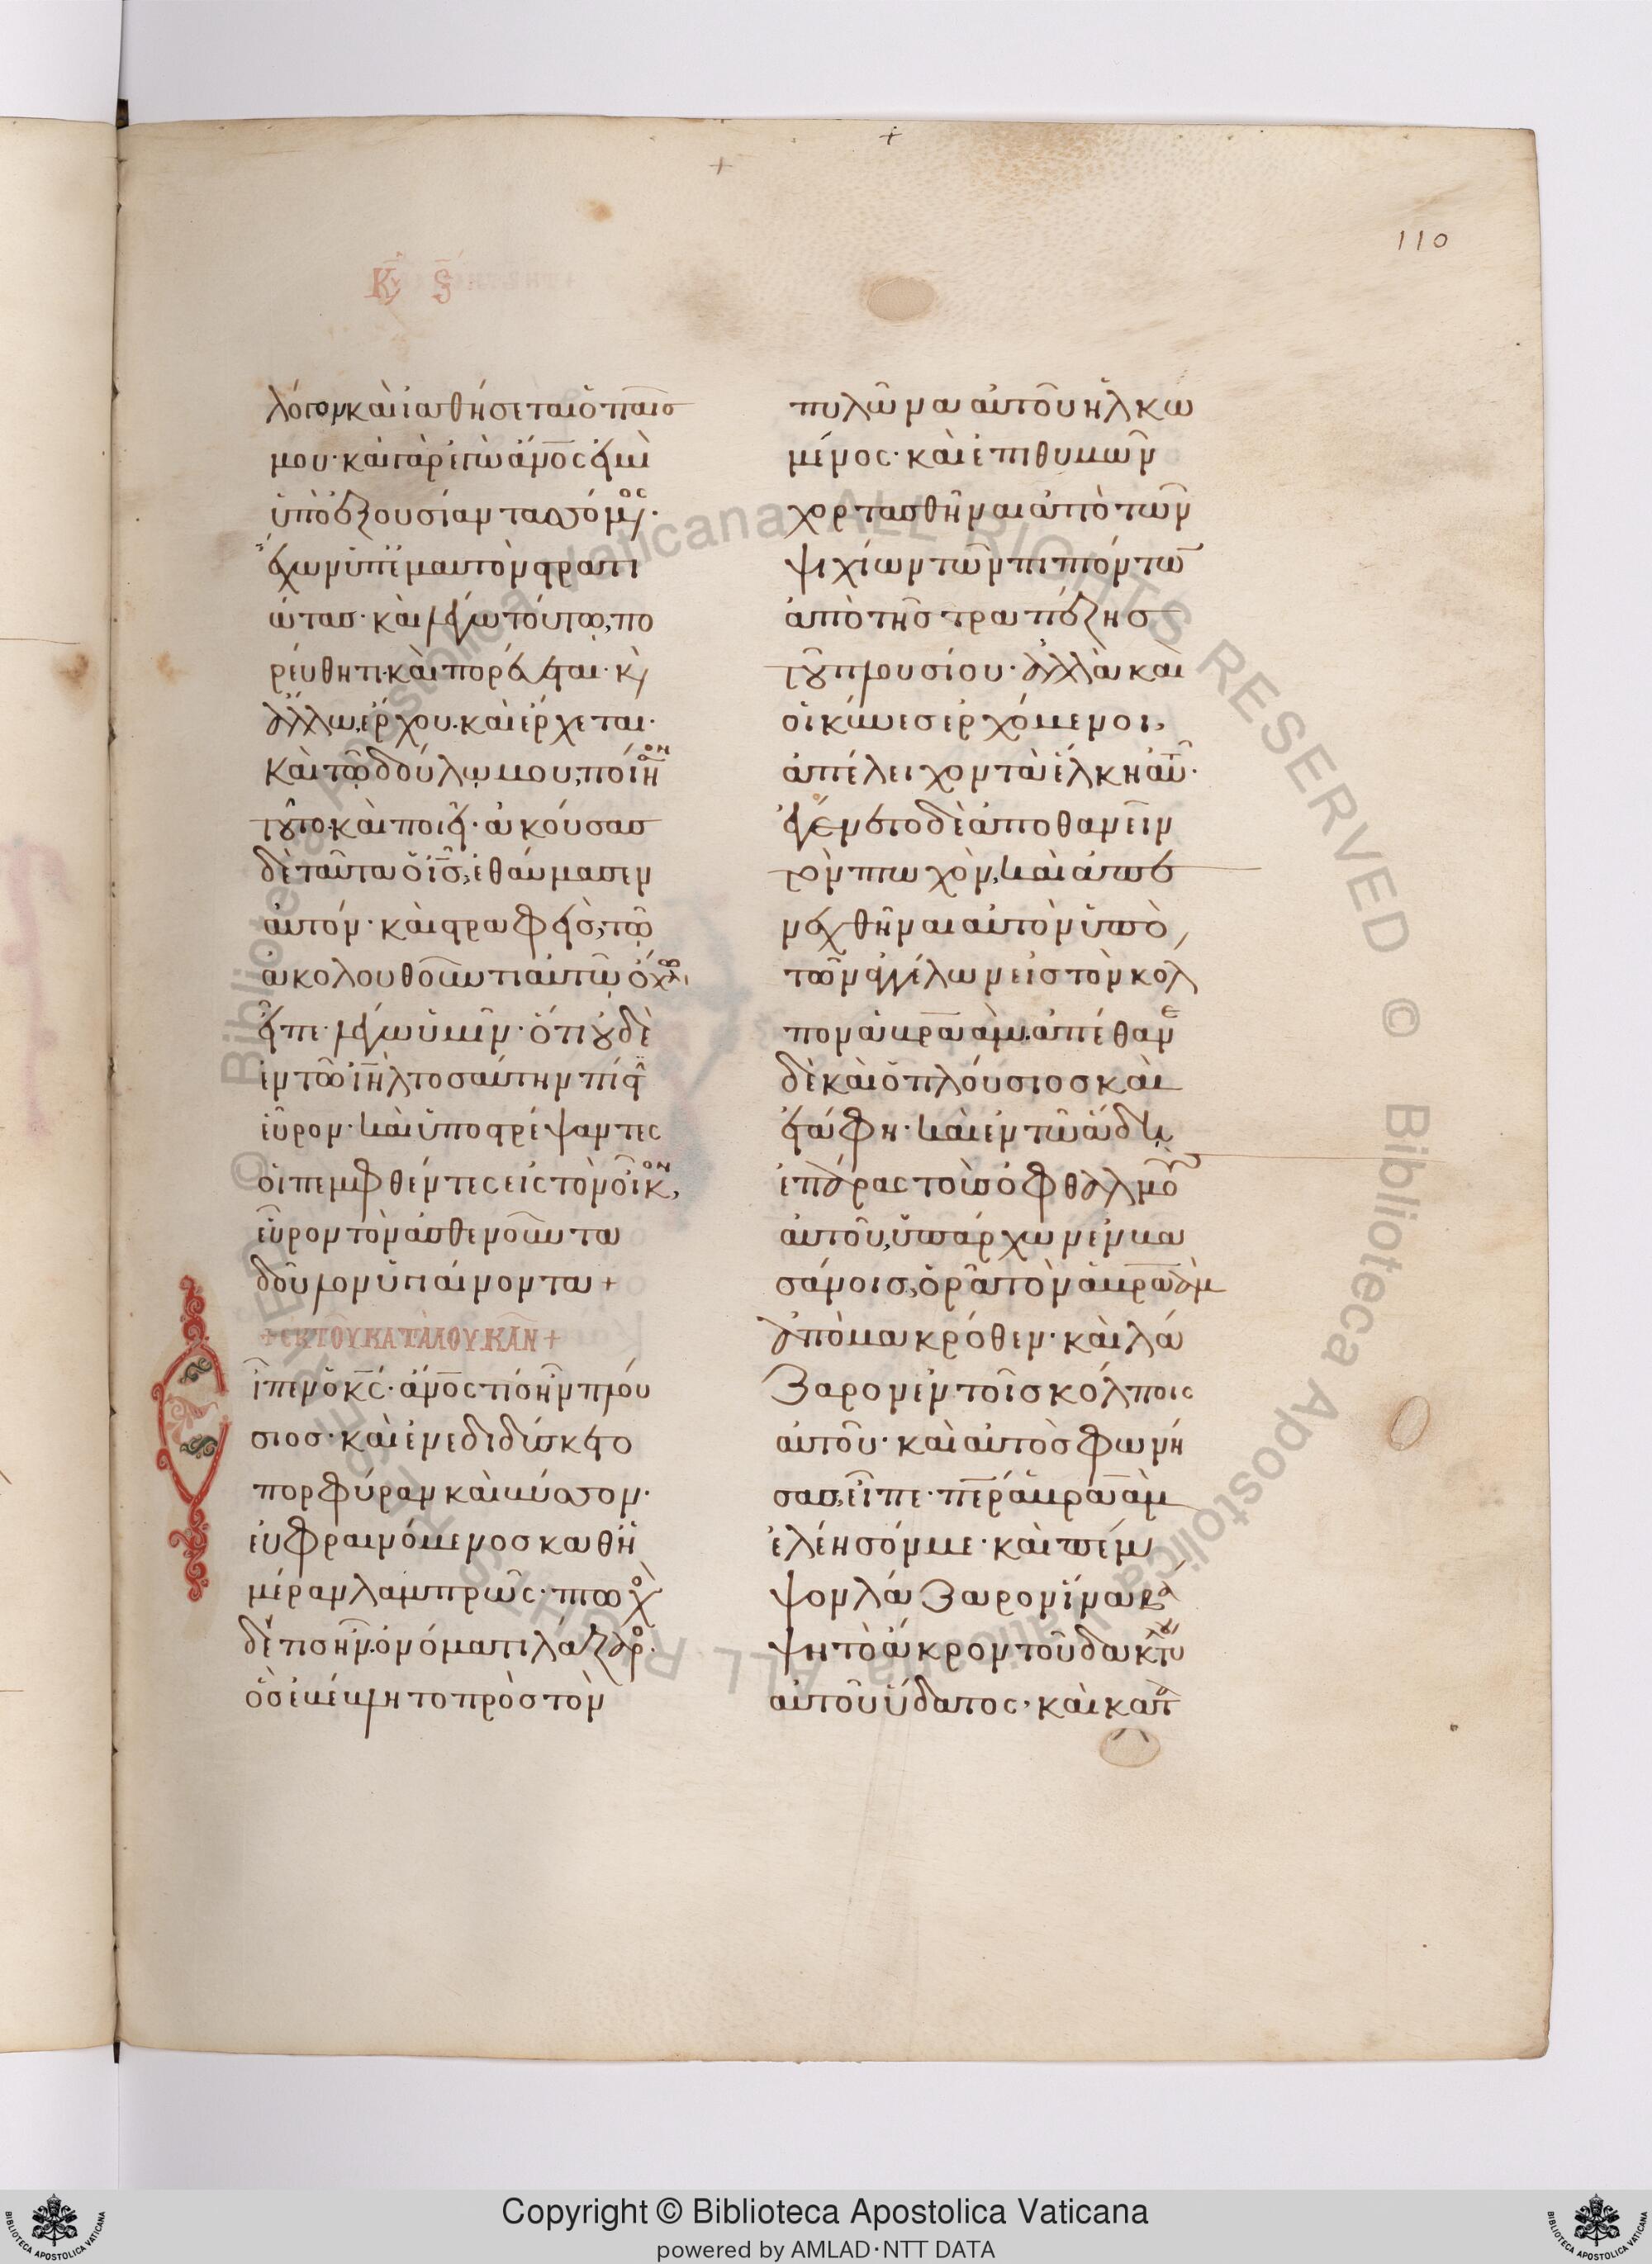 110
Κυ ϛ
λόγον καὶ ἰαθήσεται ὁ παῖσ
μου· καὶ γὰρ ἐγὼ ἄνος εἰμὶ
ὑπὸ ἐξουσίαν τασσόμενος·
ἔχων ὑπ' ἐμαυτὸν στρατι
ώτας· καὶ λέγω τούτω, πο
ρεύθητι· καὶ πορεύεται· κὶ
ἄλλω, ἔρχου· καὶ ἔρχεται·
καὶ τῷ δούλῳ μου, ποίησον
τοῦτο· καὶ ποιεῖ· ἀκούσας
δὲ ταῦτα ὁ ις, ἐθαύμασεν
αὐτόν· καὶ στραφεὶς, τῷ
ἀκολουθοῦντι αὐτῷ ὄχλω
εἶπε· λέγω ὑμῖν· ὅτι οὐδὲ
ἐν τῷ ιηλ τοσαύτην πίστιν
εὗρον· καὶ ὑποστρέψαντες
οἱ πεμφθέντες εἰς τὸν οἶκον,
εὗρον τὸν ἀσθενοῦντα
δοῦλον ὑγιαίνοντα +
+ ἐκ τοῦ κατὰ λουκᾶν +
Εἶπεν ὁ κς· ἄνος τίς ἦν πλού
σιος· καὶ ἐνεδιδύσκετο
πορφύραν καὶ βύσσον·
εὐφραινόμενος καθ' ἡ
μέραν λαμπρῶς· πτωχὸς
δέ τις ἦν ὀνόματι λάζαρος·
ὃς ἐβέβλητο πρὸς τὸν
πυλῶνα αὐτοῦ ἡλκω
μένος· καὶ ἐπιθυμῶν
χορτασθῆναι ἀπὸ τῶν
ψιχίων τῶν πιπτόντων
ἀπὸ τῆς τραπέζης
τοῦ πλουσίου· ἀλλὰ καὶ
οἱ κύνες ἐρχόμενοι,
ἀπέλειχον τὰ ἕλκη αὐτοῦ·
ἐγένετο δὲ ἀποθανεῖν
τὸν πτωχὸν, καὶ ἀπε
νεχθῆναι αὐτὸν ὑπὸ
τῶν ἀγγέλων εἰς τὸν κόλ
πον ἀβραάμ· ἀπέθανε
δὲ καὶ ὁ πλούσιος καὶ
ἐτάφη· καὶ ἐν τῷ ἅδῃ
ἐπάρας τοὺς ὀφθαλμοὺς
αὐτοῦ, ὑπάρχων ἐν βα
σάνοις, ὁρᾷ τὸν ἀβραὰμ
ἀπὸ μακρόθεν· καὶ λά
ζαρον ἐν τοῖς κόλποις
αὐτοῦ· καὶ αὐτὸς φωνή
σας, εἶπε· περ ἀβραὰμ
ἐλέησόν με· καὶ πέμ
ψον λάζαρον ἵνα βά
ψῃ τὸ ἄκρον τοῦ δακτύλου
αὐτοῦ ὕδατος· καὶ κατα
Copyright © Biblioteca Apostolica Vaticana
powered by AMLAD·NTT DATA